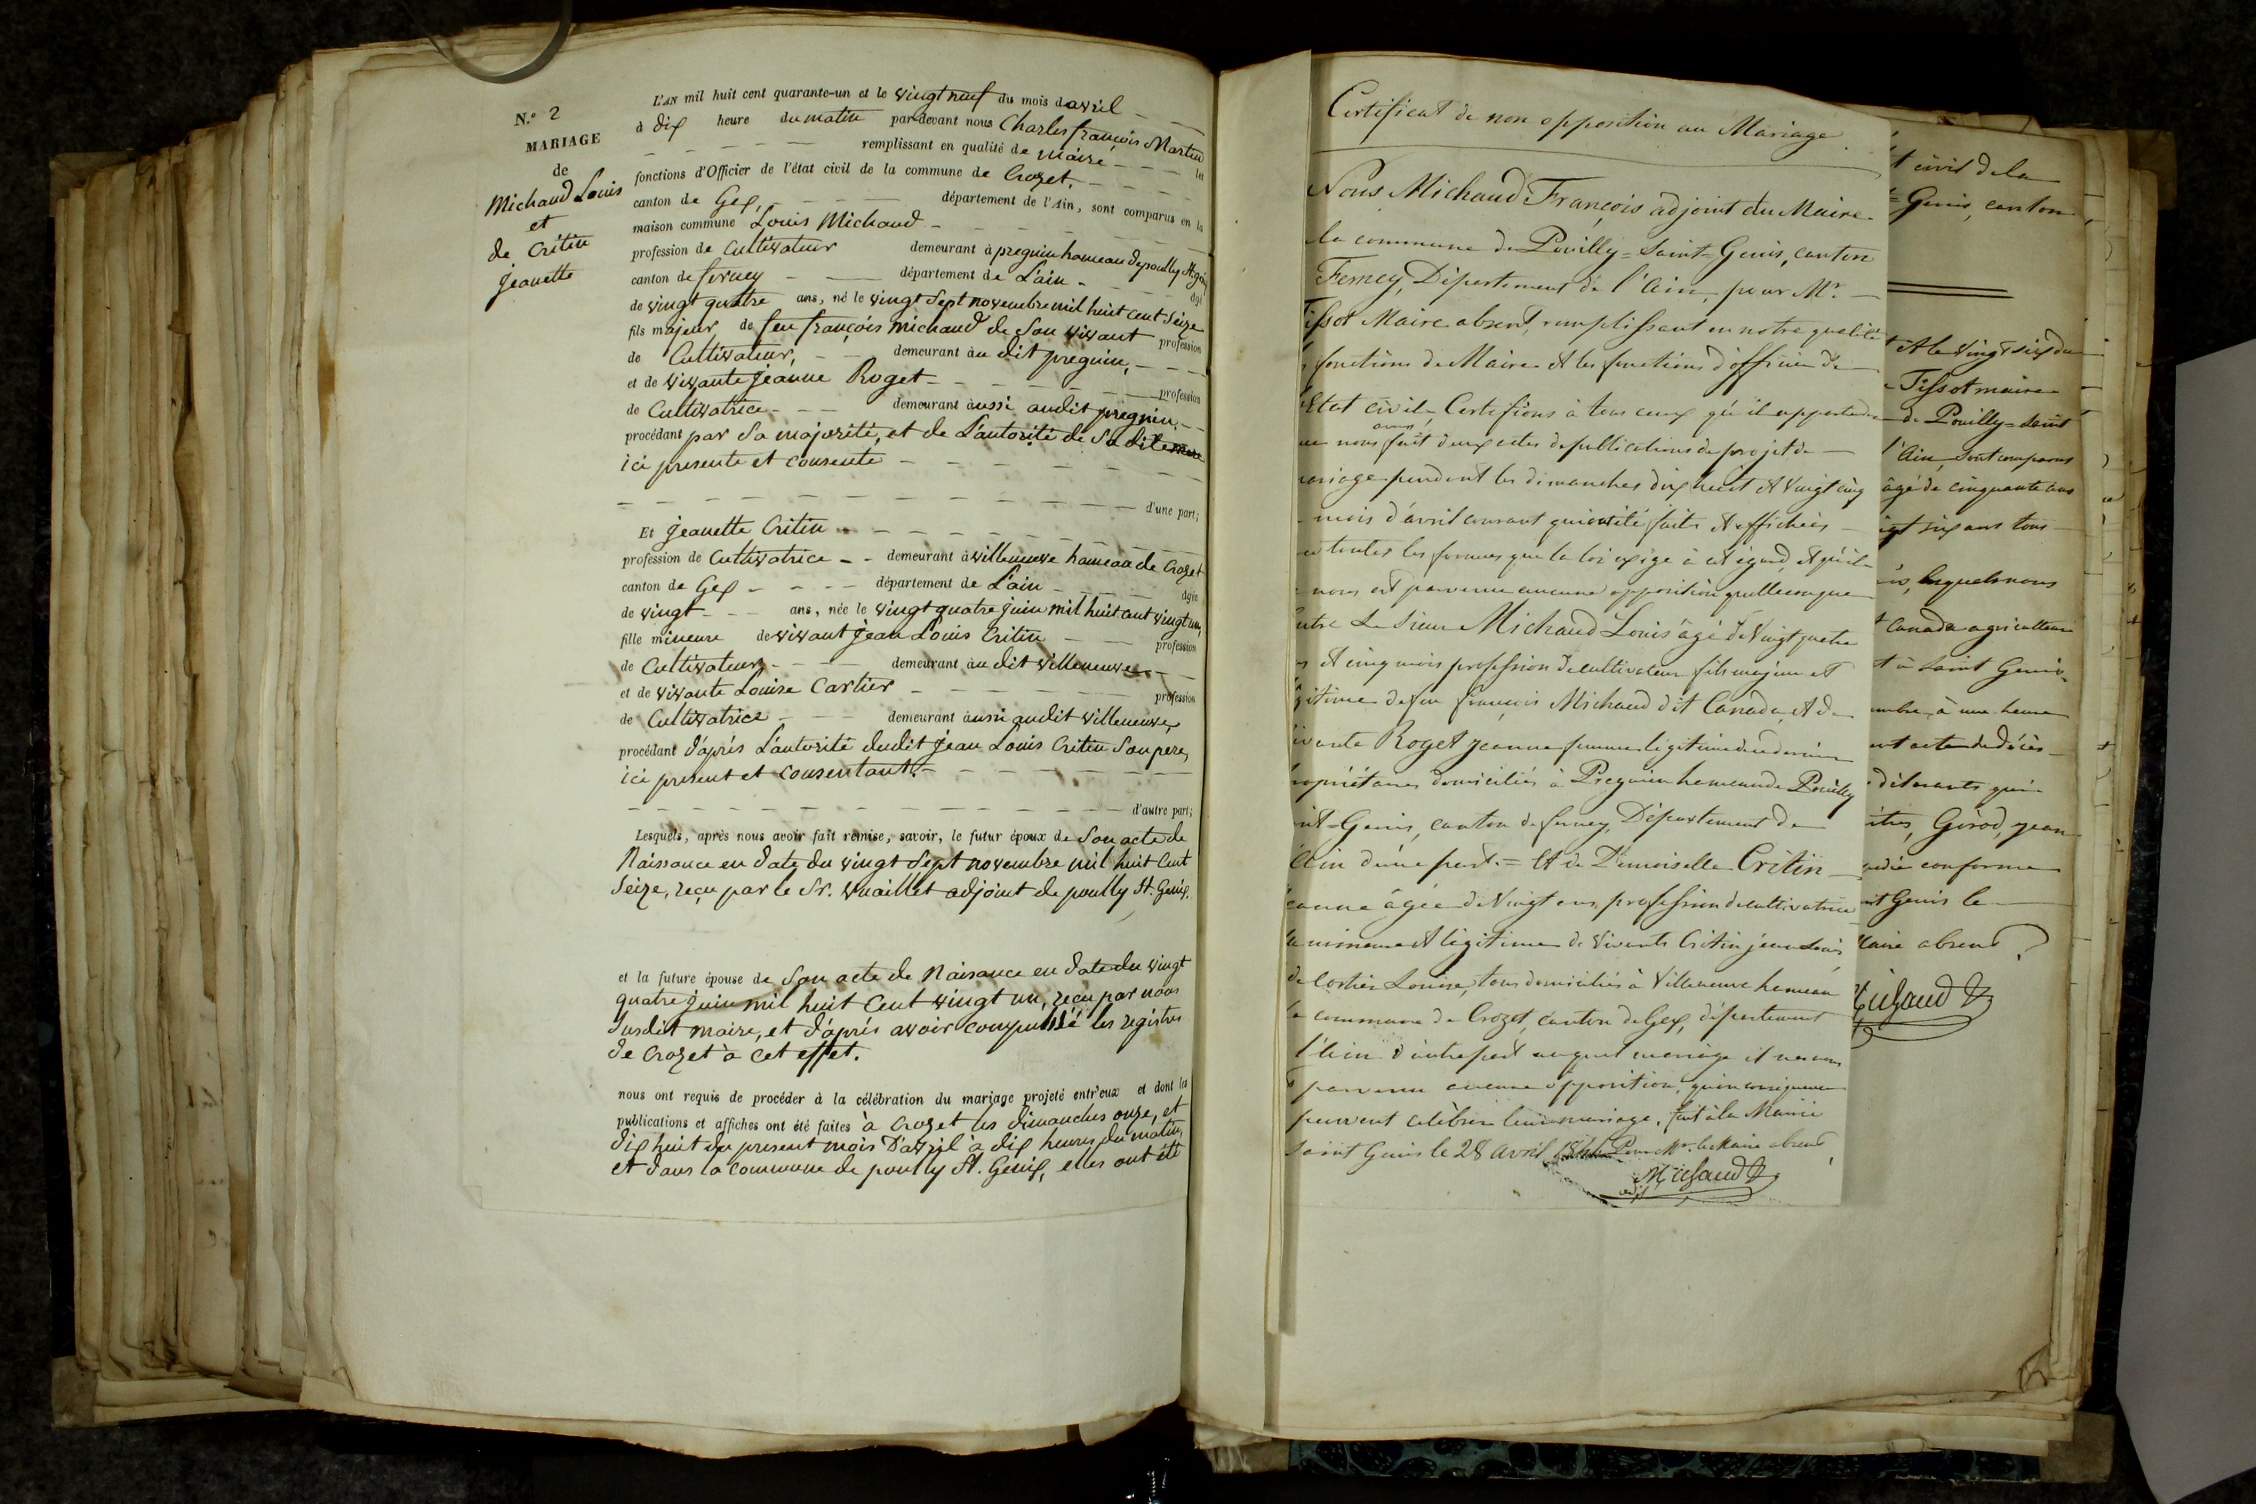 N.° 2
MARIAGE
de
Michaud Louis
et
de Critin
Jeanette
L'AN mil huit cent quarante-un et le vingt neuf du mois d'avril
à dix heure du matin par-devant nous Charles françois Martin
remplissant en qualité de maire les
fonctions d'Officier de l'état civil de la commune de Crozet,
canton de Gex, département de l'Ain, sont comparus en la
maison commune Louis Michaud
profession de Cultivateur demeurant à pregnin hameau de pouilly St. genis
canton de ferney département de L'ain
de vingt quatre ans, né le vingt Sept novembre mil huit cent Seize
fils majeur de feu françois michaud de Son vivant profession
de Cultivateur, demeurant au dit pregnin,
et de vivante Jeanne Roget profession
de Cultivatrice demeurant aussi audit pregnin,
procédant par Sa majorité, et de L'autorité de Sa dite mere
ici presente et consente
d'une part;
Et Jeanette Critin
profession de Cultivatrice demeurant à villeneuve hameau de Crozet
canton de Gex département de L'ain
de vingt ans, née le vingt quatre juin mil huit cent vingt un,
fille mineure de vivant Jean Louis Critin profession
de Cultivateur demeurant au dit villeneuve
et de vivante Louise Cartier profession
de Cultivatrice demeurant aussi audit villeneuve,
procédant d'aprés L'autorité dudit Jean Louis Critin Son pere,
ici present et consentant.
d'autre part;
Lesquels, après nous avoir fait remise, savoir, le futur époux de Son acte de
Naissance en date du vingt Sept novembre mil huit Cent
Seize, reçu par le Sr. vuaillet adjoint de poully St. Genix.
et la future épouse de Son acte de Naisance en date du vingt
quatre juin mil huit Cent vingt un, reçu par nous
Susdit maire, et d'aprés avoir compulsé les registres
de Crozet à cet effet.
nous ont requis de procéder à la célébration du mariage projeté entr'eux et dont les
publications et affiches ont été faites à Crozet les dimanches onze, et
dix huit du present mois D'avril à dix heures du matin,
et dans la commune de poully St. Genix, elles ont été
Certificat de non opposition au Mariage.
Nous Michaud François adjoint du Maire
la commune de Pouilly=Saint=Genis, canton
Ferney, Département de l'Ain, pour Mr.
Tissot Maire absent, remplissant en notre qualité
fonctions de Maire et les fonctions d'officier de
Etat civil, Certifions à tous ceux qu'il appartiendra
nous avons fait deux actes de publications de projet de
mariage pendant les dimanches dix huit et vingt cinq
mois d'avril courant qui ont été faites et affichées
toutes les formes que la loi exige à cet égard, et qu'il
nous est parvenu aucune opposition quelconque
entre Le Sieur Michaud Louis âgé de Vingt quatre
et cinq mois profession de cultivateur fils majeur et
légitime de feu françois Michaud dit Canada, et de
vivante Roget jeanne femme légitime du dernier
propriétaires domiciliés à Pregnin hameau de Pouilly
Genis, canton de ferney, Département de
Ain d'une part. = Et de Demoiselle Critin
jeanne âgée de Vingt ans, profession de cultivatrice
mineure et légitime de Vivants Critin jean Louis,
de Cartier Louise, tous domiciliés à Villeneuve hameau
commune de Crozet, canton de Gex, département
l'Ain d'autre part auquel mariage il ne nous
parvenu aucune opposition, qu'en conséquence
peuvent célébrer leur mariage. fait à la Mairie
Saint Genis le 28 avril 1841. Pour Mr. le Maire absent,
Michaud
adjt
civil de la
Genis, canton
et le Vingt six du
Tissot maire
de Pouilly=Saint
l'Ain, sont comparus
âgé de cinquante ans
six ans tous
lesquels nous
Canada agriculteur
à Saint Genis,
à une heure
acte de décès
déclarants qui
Girod, jean
conforme
Genis le
Maire absent
Michaud